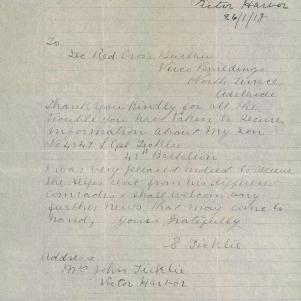 Victor Harbor
26/1/18
To
The Red Cross Bureau
Verco Buildings
North Terrace
Adelaide
Thank you kindly for all the
trouble you have taken to secure
information about my son
No 4347 L Cpl Ticklie
Battalion
I was very pleased indeed to receive
the slips sent from his different
comrades & shall welcome any
further news that may come to
hand, yours gratefully
E Ticklie
Address
Mrs John Ticklie
Victor Harbor